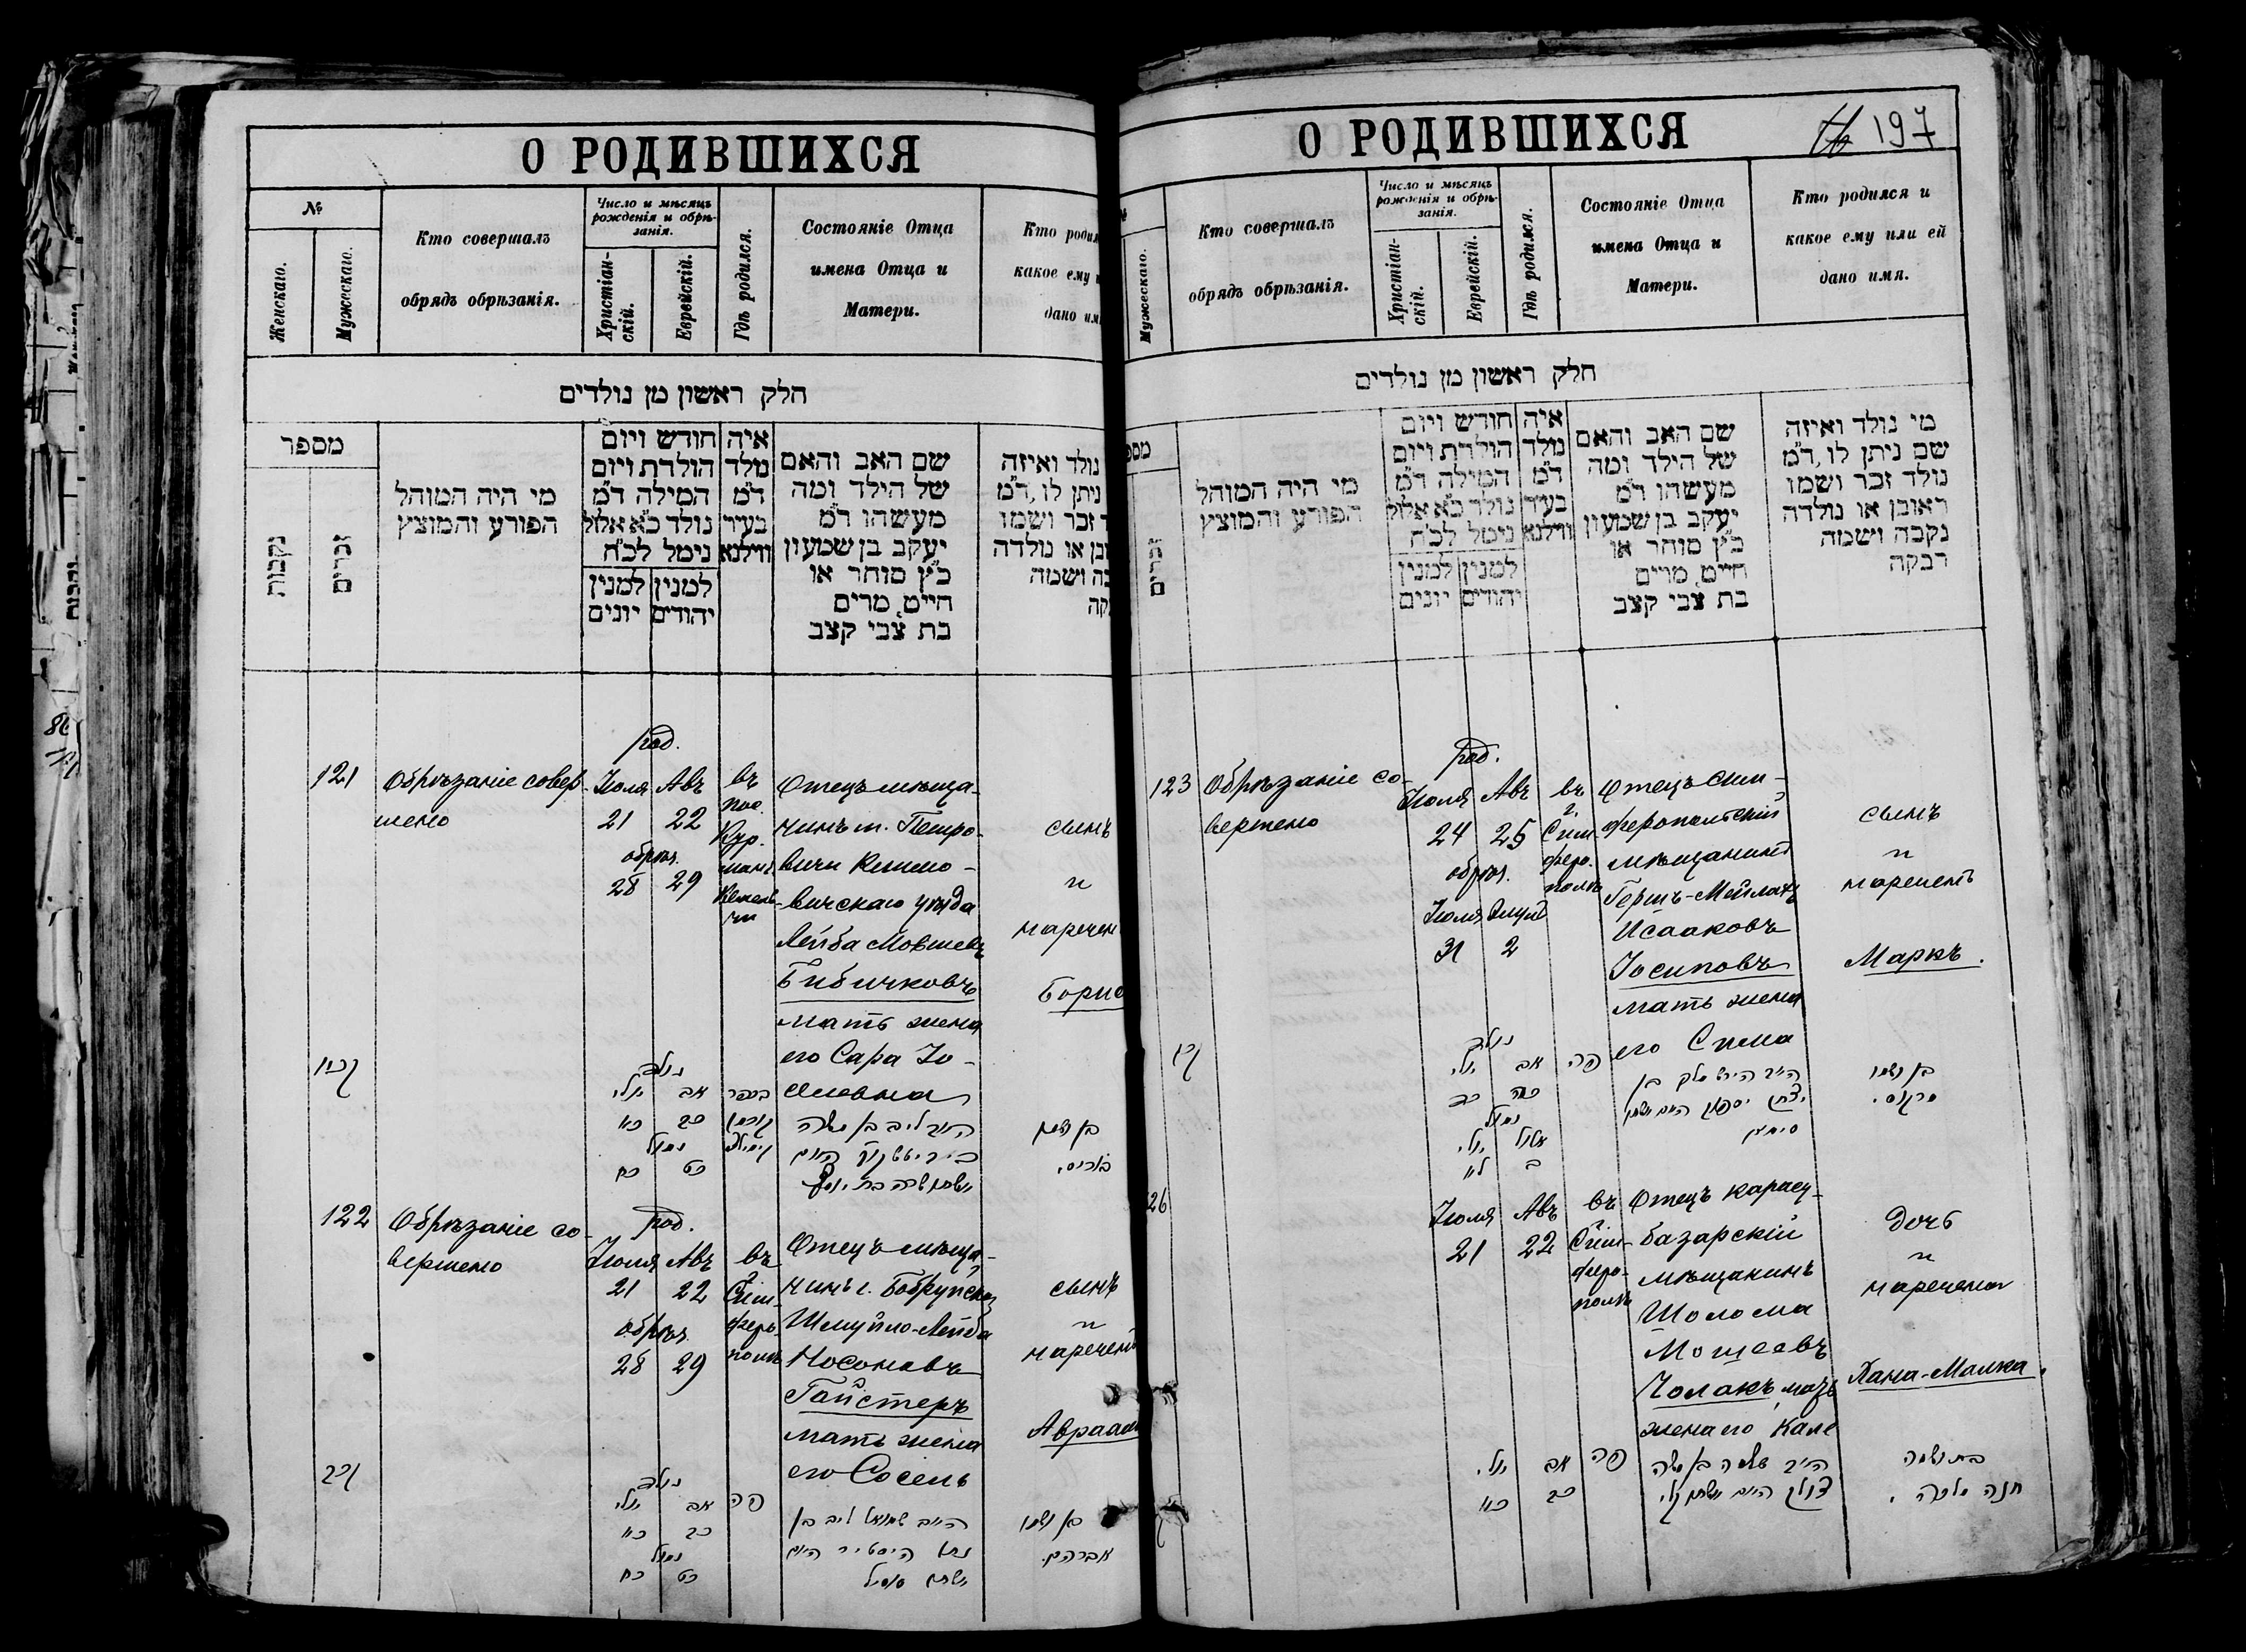 О РОДИВШИХСЯ
№
Женскаго.
Мужескаго.
Кто совершалъ
обрядъ обрѣзанія.
Число и мѣсяцъ
рожденія и обрѣ-
занія.
Христіан-
скій.
Еврейскій.
Гдѣ родился.
Состояніе Отца
имена Отца и
Матери.
Кто родил
какое ему и
дано им
חלק ראשון מן נולדים
מספר
נקבות
זכרים
מי היה המוהל
הפורע והמוצץ
חודש ויום
הולדת ויום
המילה ד״מ
נולד כ״א אלול
נימל לכ״ח
למנין למנין
יהודים יונים
איה
נולד
ד״מ
בעיר
ווילנא
שם האב והאם
של הילד ומה
מעשהו ד״מ
יעקב בן שמעון
כ״ץ סוחר או
חייט, מרים
בת צבי קצב
נולד ואיזה
ניתן לו, ד״מ
ד זכר ושמו
ובן או נולדה
בה ושמה
קה
121
Обрѣзаніе совер-
шено
род.
Іюля Авъ
21 22
обрѣз.
28 29
въ
пос.
Кур-
манъ
Кемель-
чи
Отецъ мѣща-
нинъ м. Петро-
вичи Климо-
вичскаго уѣзда
Лейба Мовшевъ
Бибичковъ
мать жена
его Сара Іо-
сіовна
сынъ
и
наречен
Борис
קכא
נולד
יולי אב
כא כב
נמול
כח כט
בכפר
קורמן
קימלצי
היו״ל ליב בן משה
ביביטשקוב היום
ושמן שרה בת יוסף
בן ושמו
באריס.
122
Обрѣзаніе со-
вершено
род.
Іюля Авъ
21 22
обрѣз.
28 29
въ
г.
Сим-
феро-
полѣ
Отецъ мѣща-
нинъ г. Бобруйска
Шмуйло-Лейба
Носоновъ
Гайстеръ
мать жена
его Сосель
сынъ
и
нареченъ
Авраам
קכב
נולד
יולי אב
כא כב
נמול
כח כט
פה
היו״ב שמואל ליב בן
נתן הייסטיר היום
ושמן סאסיל
בן ושמו
אברהם.
О РОДИВШИХСЯ
197
Мужескаго.
Кто совершалъ
обрядъ обрѣзанія.
Число и мѣсяцъ
рожденія и обрѣ-
занія.
Христіан-
скій.
Еврейскій.
Гдѣ родился.
Состояніе Отца
имена Отца и
Матери.
Кто родился и
какое ему или ей
дано имя.
חלק ראשון מן נולדים
מספ
זכרים
מי היה המוהל
הפורע והמוצץ
חודש ויום
הולדת ויום
המילה ד״מ
נולד כ״א אלול
נימל לכ״ח
למנין למנין
יהודים יונים
איה
נולד
ד״מ
בעיר
ווילנא
שם האב והאם
של הילד ומה
מעשהו ד״מ
יעקב בן שמעון
כ״ץ סוחר או
חייט, מרים
בת צבי קצב
מי נולד ואיזה
שם ניתן לו, ד״מ
נולד זכר ושמו
ראובן או נולדה
נקבה ושמה
רבקה
123
Обрѣзаніе со-
вершено
род.
Іюля Авъ
24 25
обрѣз.
Іюля Элулъ
31 2
въ
г.
Сим-
феро-
полѣ
Отецъ Сим-
феропольскій
мѣщанинъ
Гершъ-Мейлахъ
Исааковъ
Іосиповъ
мать жена
его Сима
сынъ
и
нареченъ
Маркъ.
נולד
יולי אב
כד כה
נמול
יולי אלול
לא ב
פה
בן ושמו
מרקוס.
26
Іюля Авъ
21 22
въ
г.
Сим-
феро-
полѣ
Отецъ карасу-
базарскій
мѣщанинъ
Шолома
Мошеевъ
Чолакъ мать
жена его Кале
дочь
и
наречена
Хана-Малка.
יולי אב
כא כב
פה
היו״ב שלמה בן משה
צולק היום ושמן קלי
בת ושמה
חנה מלכה.